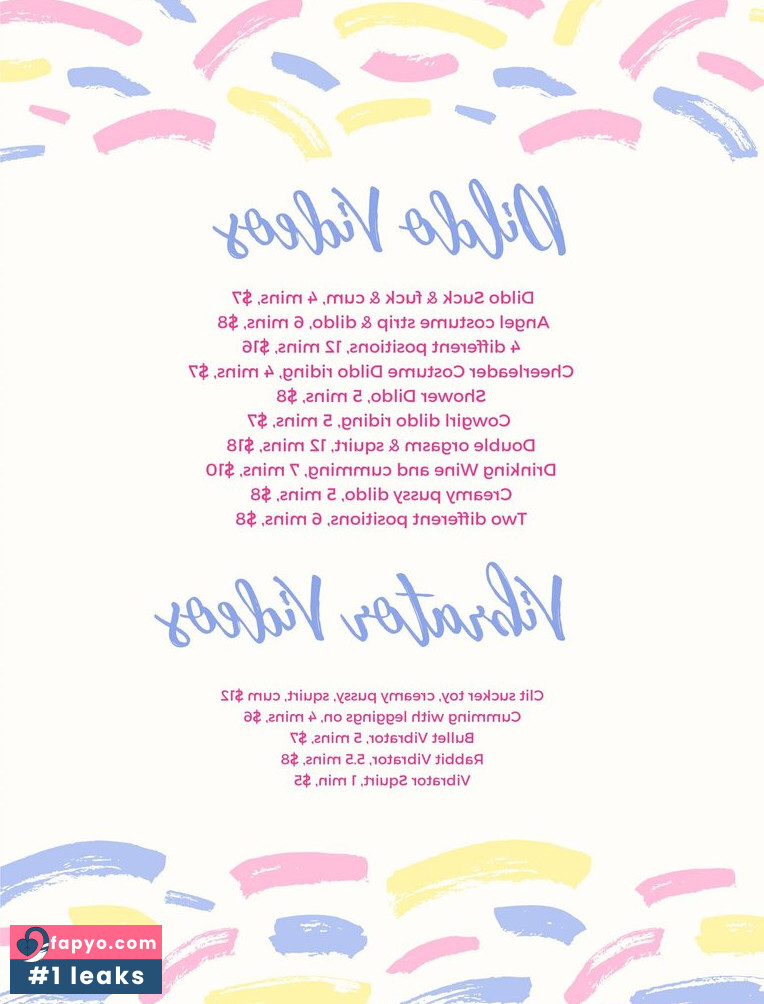 Dildo Videos
Dildo Suck & fuck & cum, 4 mins, $7
Angel costume strip & dildo, 6 mins, $8
4 different positions, 12 mins, $16
Cheerleader Costume Dildo riding, 4 mins, $7
Shower Dildo, 5 mins, $8
Cowgirl dildo riding, 5 mins, $7
Double orgasm & squirt, 12 mins, $18
Drinking Wine and cumming, 7 mins, $10
Creamy pussy dildo, 5 mins, $8
Two different positions, 6 mins, $8
Vibrator Videos
Clit sucker toy, creamy pussy, squirt, cum $12
Cumming with leggings on, 4 mins, $6
Bullet Vibrator, 5 mins, $7
Rabbit Vibrator, 5.5 mins, $8
Vibrator Squirt, 1 min, $5
fapyo.com
#1 leaks